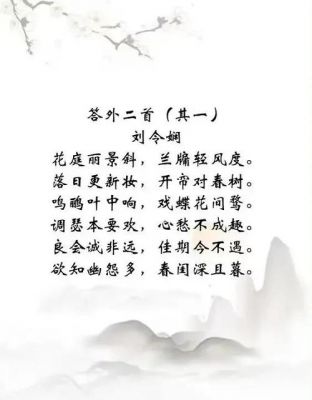 答外二首（其一）
刘令娴
花庭丽景斜，兰牖轻风度。
落日更新妆，开帘对春树。
鸣鹂叶中响，戏蝶花间骛。
调瑟本要欢，心愁不成趣。
良会诚非远，佳期今不遇。
欲知幽怨多，春闺深且暮。